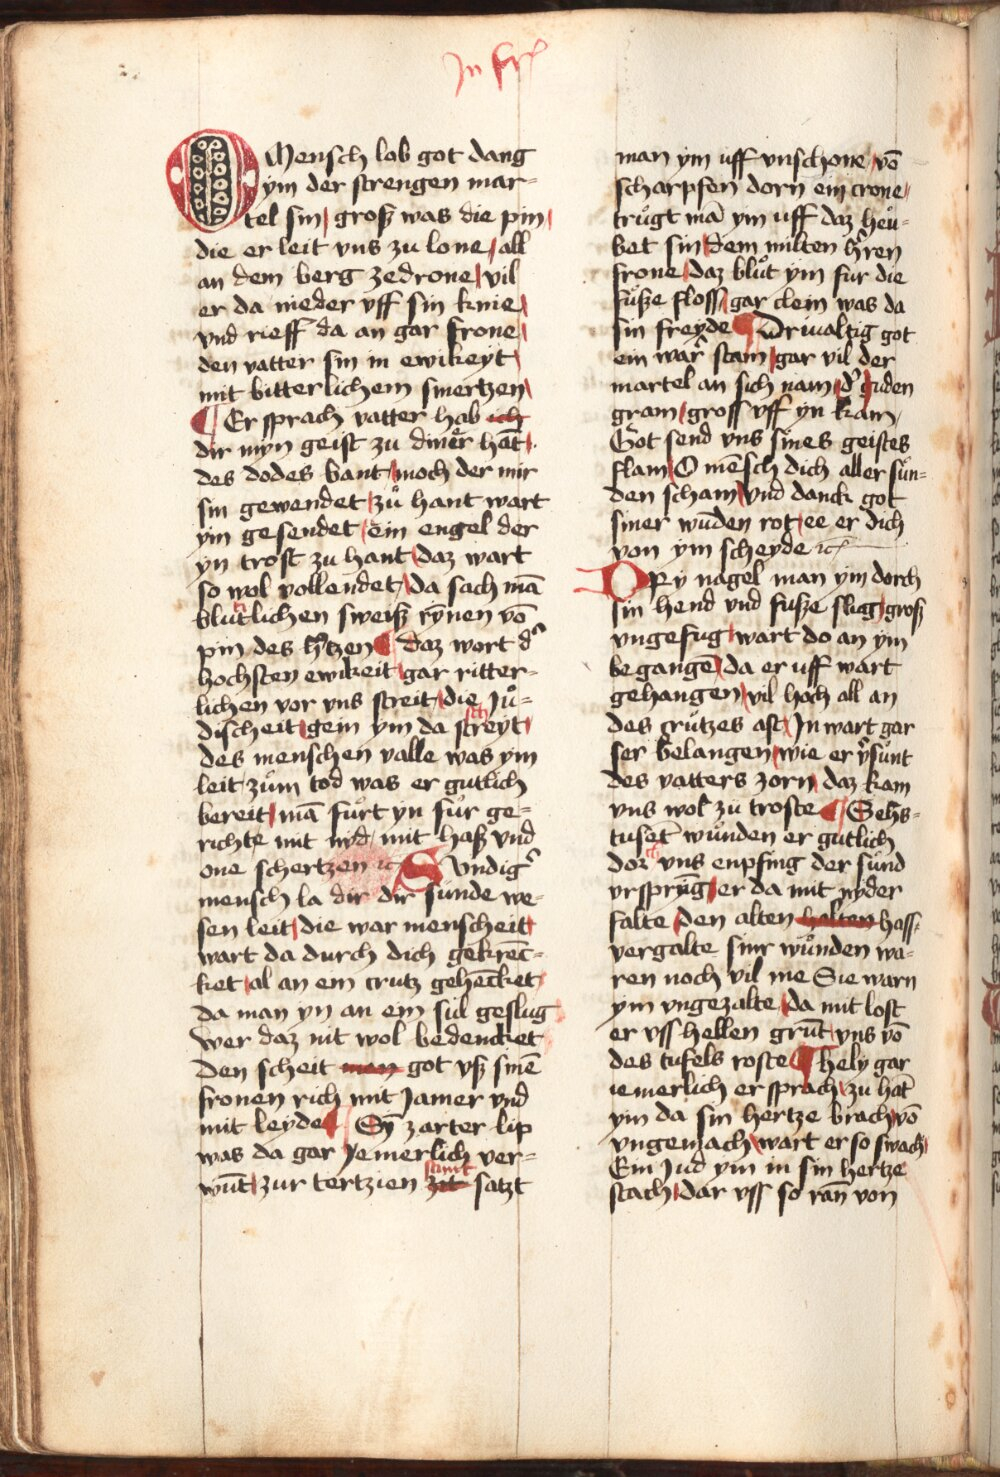 O Mensch lob got dang
ym der strengen mar-
tel sin, groß was die pin,
die er leit vns zu lone, all
an dem berg zedrone, vil
er da nieder vff sin knie,
vnd rieff da an gar frone,
den vatter sin in ewikeyt,
mit bitterlichem smertzen,
¶ Er sprach vatter hab ich
dir myn geist zu dineͤr hāt,
des dodes bant, moch der mir
sin gewendet, zuͦ hant wart
ym gesendet, ein engel der
yn trost zu hant, daz wart
so wol vollendet, da sach mā
bluͦtlichen sweiß rȳnen vō
pin des h'tzen ¶ daz wort d'
hochsten ewikeit, gar ritter-
lichen vor vns streit, die Juͦ-
discheit, gein ym da streyt,
des menschen valle was ym
leit, zuͦm tod was er gutlich
bereit, mā fuͦrt yn fuͦr ge-
richte mit nyd, mit haß vnd
one schertzen ꝛc Sundig'
mensch la dir dir sunde we-
sen leit, die war menscheit,
wart da durch dich gekrēc-
ket, al an em crutz gehēcket,
da man yn an em sul geslug
wer daz nit wol bedencket
den scheit men got vß sinē
fronen rich mit Jamer vnd
mit leyde ¶ Sȳ zarter lip
was da gar Jemerlich ver-
wūt, zur tertzien zit stunt satzt
man ym uff vnschone, vō
scharpfen dorn ein crone,
truͦgt mā ym uff daz heu-
bet sin, dem milten h'ren
frone, daz bluͦt ym fur die
fuͦße floss, gar clein was da
sin freyde ¶ Drualtig got
ein war' stam, gar vil der
martel an sich nam, d' Juden
gram, gross vff yn kam,
Got send vns sines geistes
flam, O mēsch dich aller suͦn-
den scham, vnd danck got
siner wuden rot, ee er dich
von ym scheyde ꝛc
Dry nagel man ym dorch
sin hend vnd fuße slug, groß
vngefug, wart do an ym
begangē, da er uff wart
gehangen, vil hoch all an
des cruͦtzes ast, In wart gar
ser belangen, wie er v'suͦnt
des vatters zorn, daz kam
vns wol zu troste ¶ Sehs-
tuset' wuͦnden er gutlich
dorch vns enpfing der suͦnd
vrsprūg, er da mit nyder
falte, den alten halten hass,
vergalte sinr wuͦnden wa-
ren noch vil me Sie warn
ym vngezalte, da mit lost
er vss hellen grūt, vns vō
des tufels roste ¶ hely gar
iemerlich er sprach, zu hāt
ym da sin hertze brach, vō
vngemach, wart er so swach,
Ein Jud ym in sin hertze
stach, dar vss so rān von